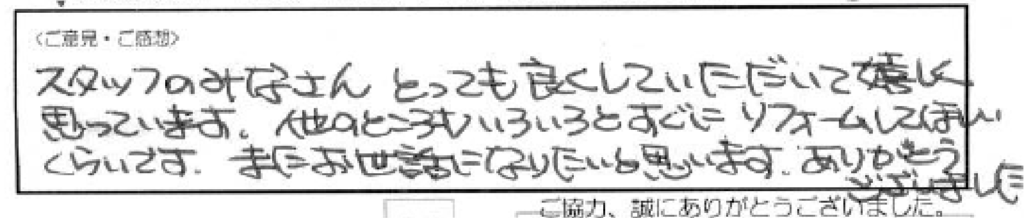 〈ご意見・ご感想〉
スタッフのみなさん とっても良くしていただいて嬉しく
思っています。他のところもいろいろとすぐに リフォームしてほしい
くらいです。またお世話になりたいと思います。ありがとう
ございました
ご協力、誠にありがとうございました。